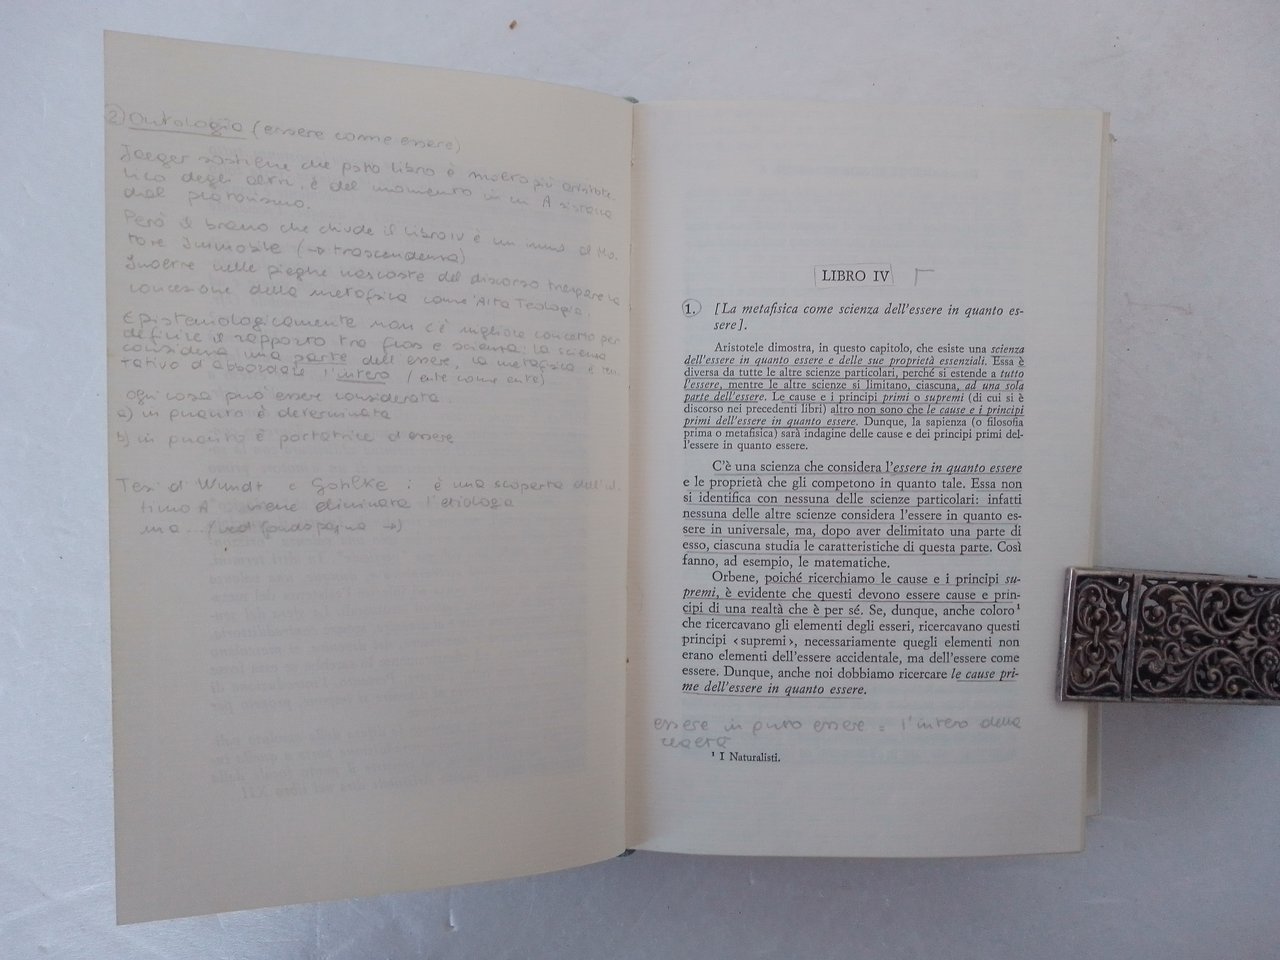 2) Ontologia (essere come essere)
Jaeger sostiene che psto libro è molto più aristote
lico degli altri, è del momento in cui A si stacca
dal platonismo.
Però il brano che chiude il libro IV è un inno al Mo.
tore Immobile (→ trascendenza)
Inoltre nelle pieghe nascoste del discorso traspare la
concezione della metafisica come Alta Teologia.
Epistemologicamente non c'è migliore concetto per
definire il rapporto tra filos e scienza: la scienza
considera una parte dell'essere, la metafisica è ten
tativo d'abbordare l'intero (ente come ente)
ogni cosa può essere considerata
a) in quanto è determinata
b) in quanto è portatrice d'essere
Tesi d Wundt e Gohlke : è una scoperta dell'ul.
timo A viene eliminata l'etiologia
ma ... (vedi fondopagina →)
LIBRO IV
1. [La metafisica come scienza dell'essere in quanto es-
sere].
Aristotele dimostra, in questo capitolo, che esiste una scienza
dell'essere in quanto essere e delle sue proprietà essenziali. Essa è
diversa da tutte le altre scienze particolari, perché si estende a tutto
l'essere, mentre le altre scienze si limitano, ciascuna, ad una sola
parte dell'essere. Le cause e i principi primi o supremi (di cui si è
discorso nei precedenti libri) altro non sono che le cause e i principi
primi dell'essere in quanto essere. Dunque, la sapienza (o filosofia
prima o metafisica) sarà indagine delle cause e dei principi primi del-
l'essere in quanto essere.
C'è una scienza che considera l'essere in quanto essere
e le proprietà che gli competono in quanto tale. Essa non
si identifica con nessuna delle scienze particolari: infatti
nessuna delle altre scienze considera l'essere in quanto es-
sere in universale, ma, dopo aver delimitato una parte di
esso, ciascuna studia le caratteristiche di questa parte. Così
fanno, ad esempio, le matematiche.
Orbene, poiché ricerchiamo le cause e i principi su-
premi, è evidente che questi devono essere cause e prin-
cipi di una realtà che è per sé. Se, dunque, anche coloro¹
che ricercavano gli elementi degli esseri, ricercavano questi
principi ‹supremi›, necessariamente quegli elementi non
erano elementi dell'essere accidentale, ma dell'essere come
essere. Dunque, anche noi dobbiamo ricercare le cause pri-
me dell'essere in quanto essere.
essere in qnto essere = l'intero della
realtà
¹ I Naturalisti.